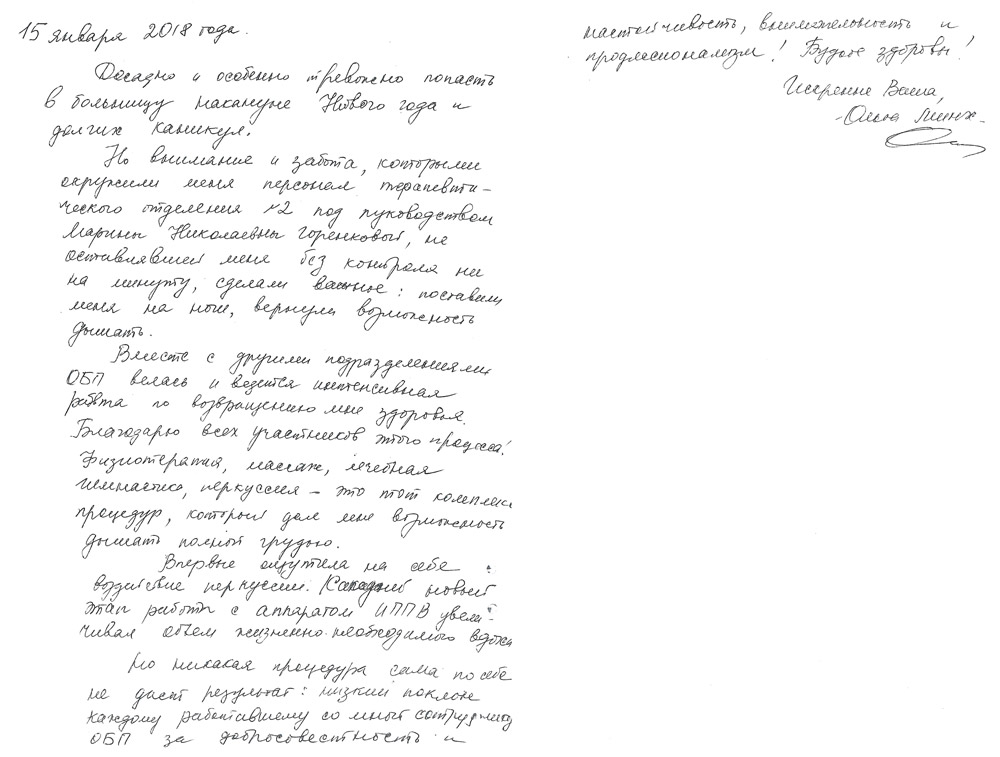 15 января 2018 года.
Досадно и особенно тревожно попасть
в больницу накануне Нового года и
долгих каникул.
Но внимание и забота, которыми
окружили меня персонал терапевти-
ческого отделения №2 под руководством
Марины Николаевны Горенковой, не
оставлявшей меня без контроля ни
на минуту, сделали важное: поставили
меня на ноги, вернули возможность
дышать.
Вместе с другими подразделениями
ОБП велась и ведется интенсивная
работа по возвращению мне здоровья.
Благодарю всех участников этого процесса!
Физиотерапия, массаж, лечебная
гимнастика, перкуссия – это тот комплекс
процедур, который дал мне возможность
дышать полной грудью.
Впервые ощутила на себе
воздействие перкуссии. Каждый новый
этап работы с аппаратом ИППВ увели-
чивал объем жизненно необходимого вдоха
Но никакая процедура сама по себе
не даст результат: низкий поклон
каждому работавшему со мной сотруднику
ОБП за добросовестность и
настойчивость, внимательность и
профессионализм! Будьте здоровы!
Искренне Ваша,
- Ольга